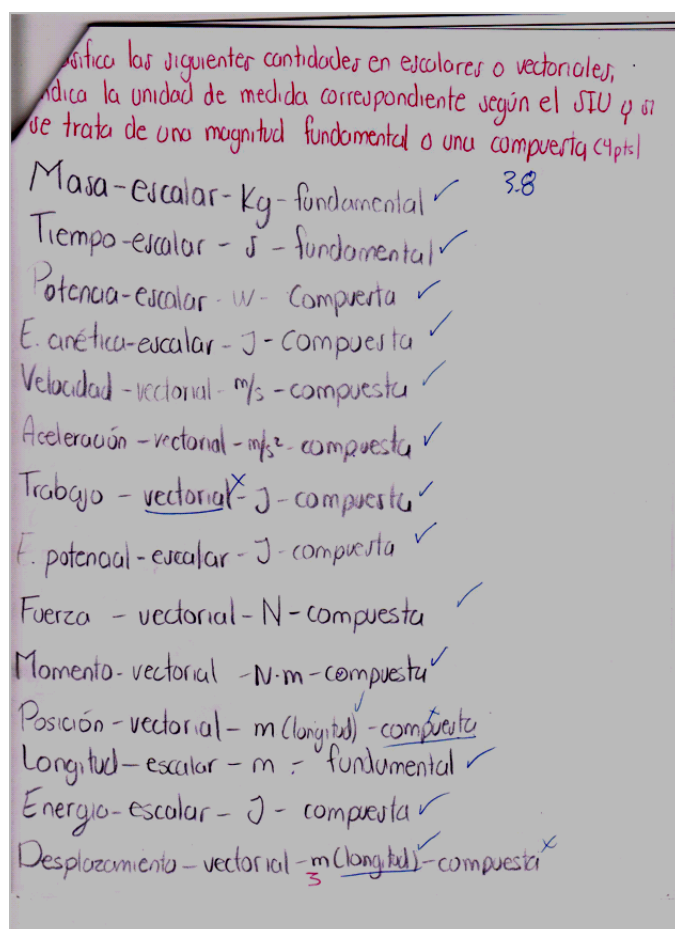 sifica las siguientes cantidades en escalares o vectoriales,
ndica la unidad de medida correspondiente según el SIU y si
se trata de una magnitud fundamental o una compuesta (4pts)
Masa - escalar - Kg - fundamental ✓ 3.8
Tiempo - escalar - s - fundamental ✓
Potencia - escalar - W - Compuesta ✓
E. cinética - escalar - J - Compuesta ✓
Velocidad - vectorial - m/s - compuesta ✓
Aceleración - vectorial - m/s² - compuesta ✓
Trabajo - vectorial x - J - compuesta ✓
E. potencial - escalar - J - compuesta ✓
Fuerza - vectorial - N - compuesta ✓
Momento - vectorial - N·m - compuesta ✓
Posición - vectorial - m (longitud) ✓ - compuesta x
Longitud - escalar - m - fundamental ✓
Energia - escalar - J - compuesta ✓
Desplazamiento - vectorial - m (longitud) ✓ - compuesta x
3